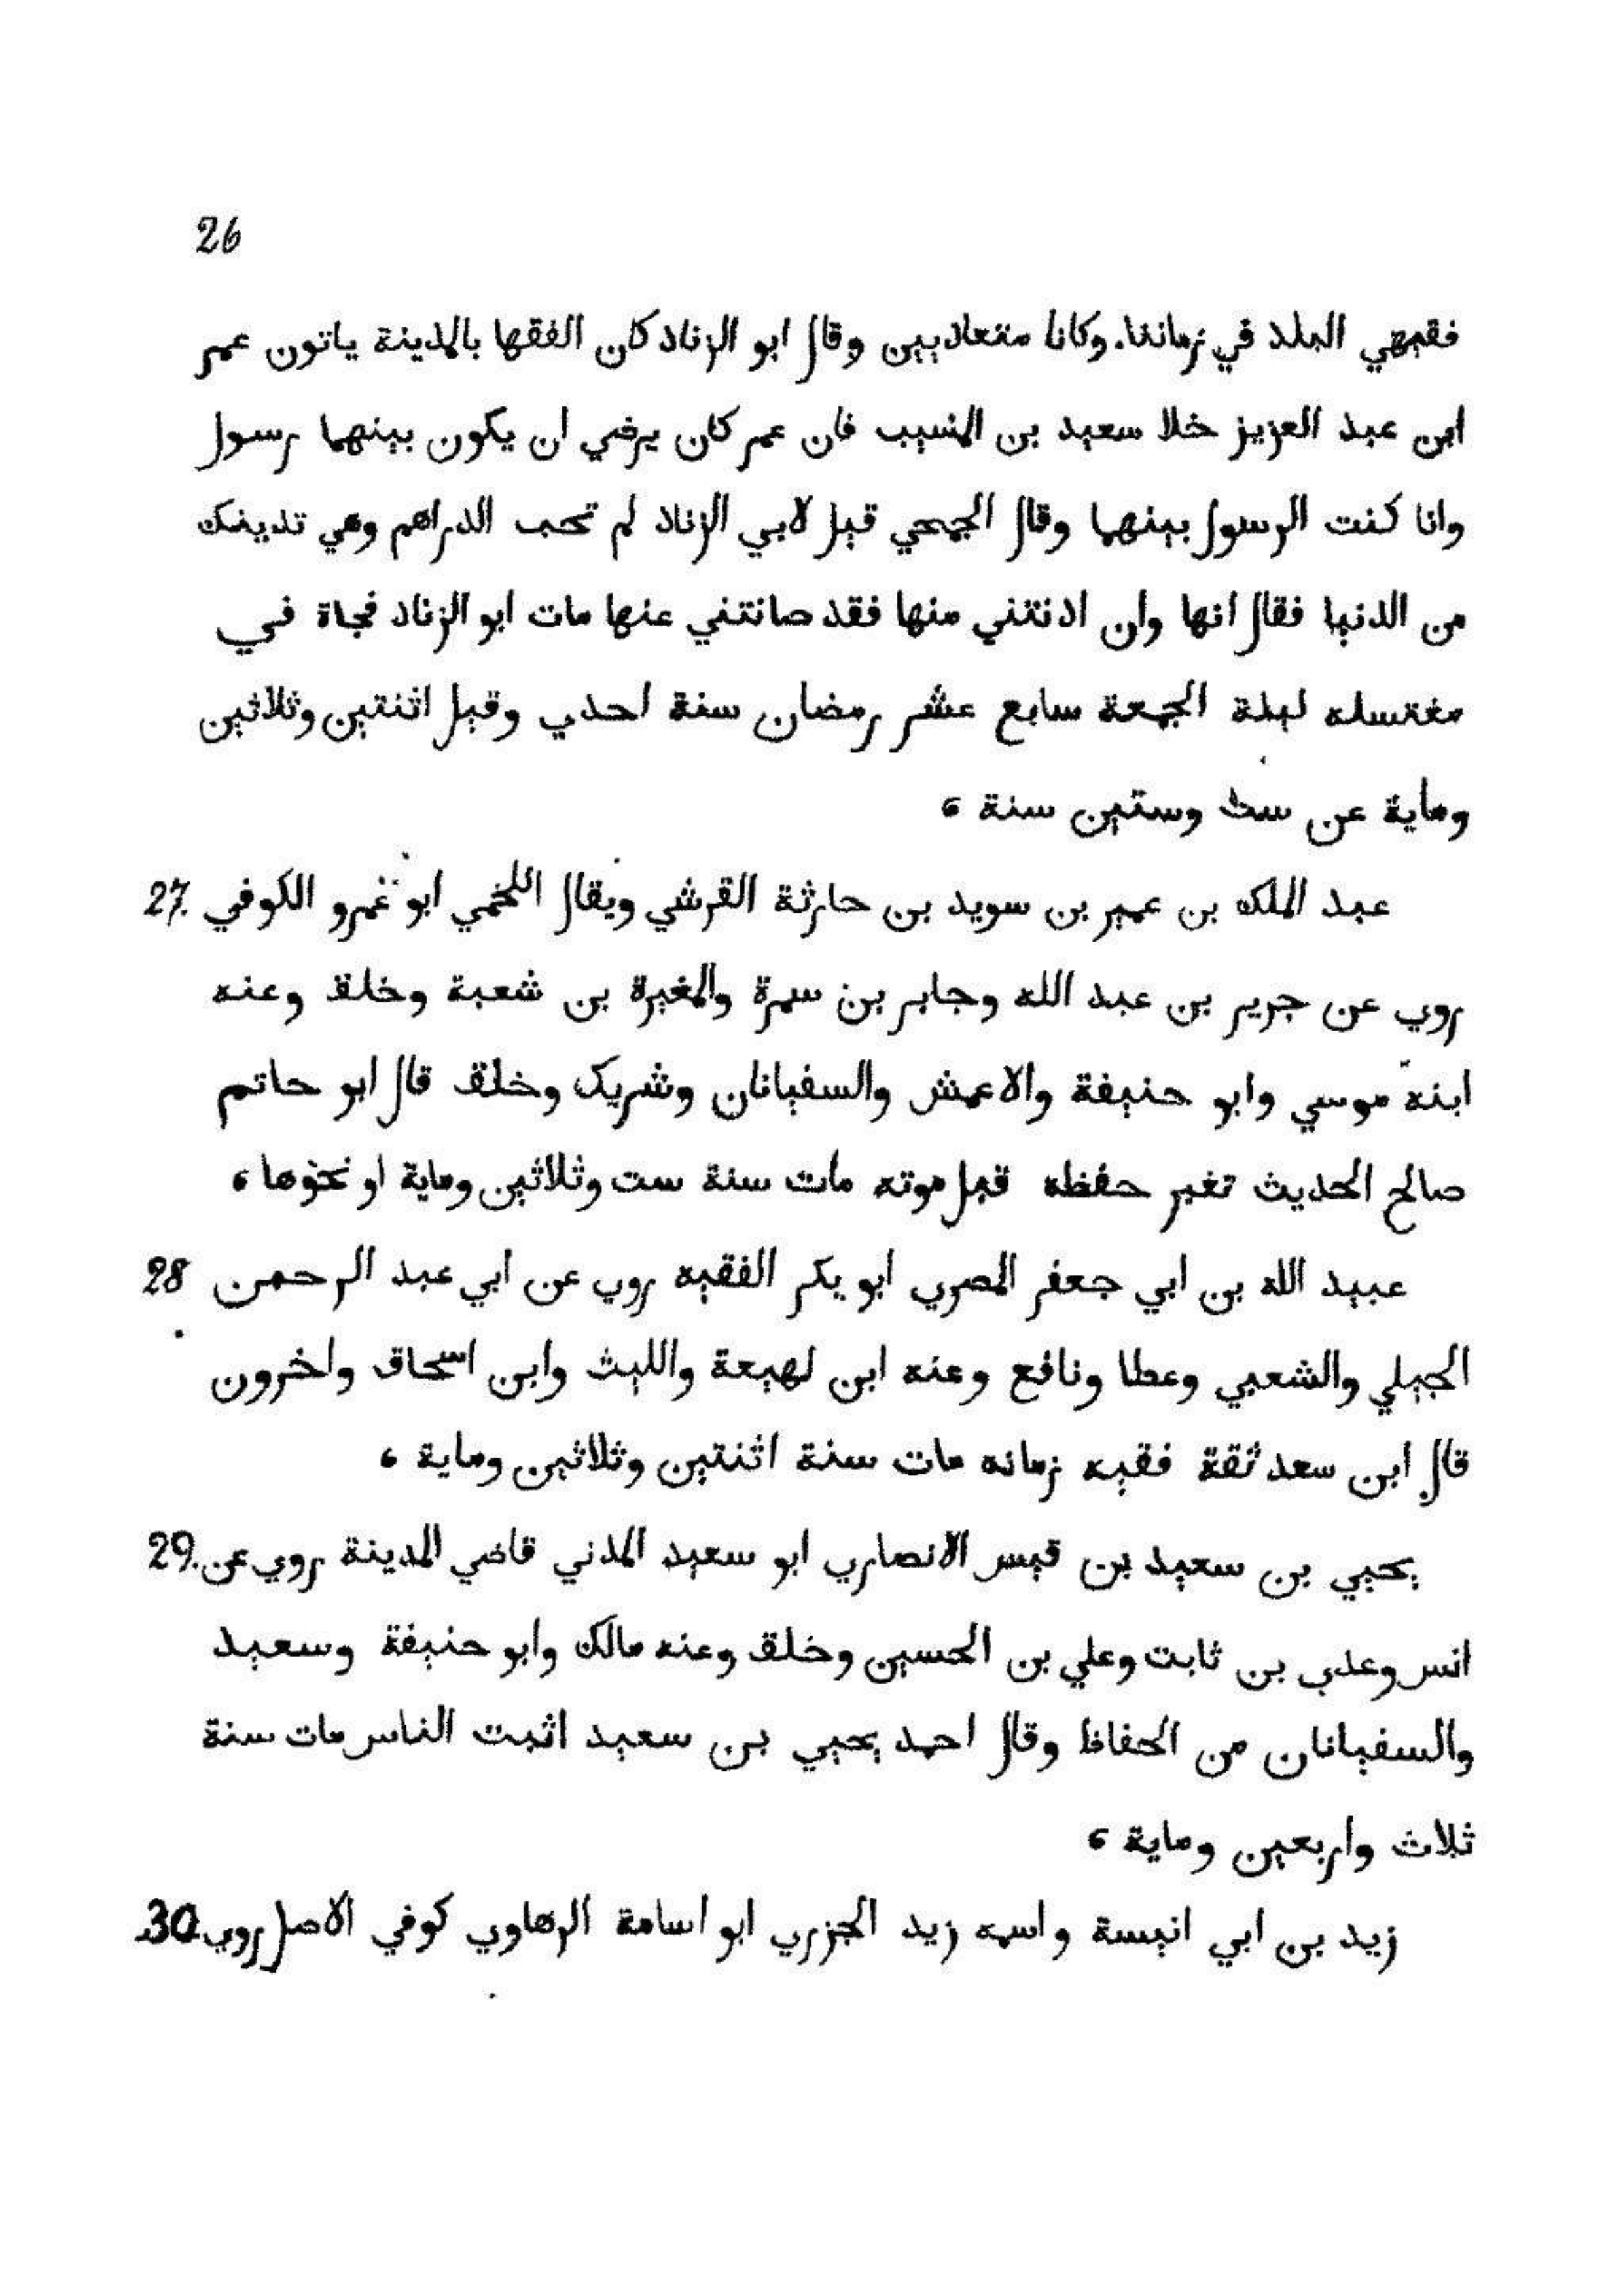 26
فقيهي البلد في زماننا. وكانا متعاديين وقال ابو الزناد كان الفقها بالمدينة ياتون عمر
ابن عبد العزيز خلا سعيد بن المسيب فان عمر كان يرضي ان يكون بينهما رسول
وانا كنت الرسول بينهما وقال الجمحي قيل لابي الزناد لم تحب الدراهم وهي تدينك
من الدنيا فقال انها وان ادنتني منها فقد صانتني عنها مات ابو الزناد فجاة في
مغتسله ليلة الجمعة سابع عشر رمضان سنة احدي وقيل اثنتين وثلاثين
وماية عن ست وستين سنة ،
عبد الملك بن عمير بن سويد بن حارثة القرشي ويقال اللخمي ابو عمرو الكوفي 27.
روي عن جرير بن عبد الله وجابر بن سمرة والمغيرة بن شعبة وخلق وعنه
ابنه موسي وابو حنيفة والاعمش والسفيانان وشريك وخلق قال ابو حاتم
صالح الحديث تغير حفظه قبل موته مات سنة ست وثلاثين وماية او نحوها ،
عبيد الله بن ابي جعفر المصري ابو بكر الفقيه روي عن ابي عبد الرحمن 28
الجبلي والشعبي وعطا ونافع وعنه ابن لهيعة والليث وابن اسحاق واخرون
قال ابن سعد ثقة فقيه زمانه مات سنة اثنتين وثلاثين وماية ،
يحيي بن سعيد بن قيس الانصاري ابو سعيد المدني قاضي المدينة روي عن 29.
انس وعدي بن ثابت وعلي بن الحسين وخلق وعنه مالك وابو حنيفة وسعيد
والسفيانان من الحفاظ وقال احمد يحيي بن سعيد اثبت الناس مات سنة
ثلاث واربعين وماية ،
زيد بن ابي انيسة واسمه زيد الجزري ابو اسامة الرهاوي كوفي الاصل روي 30.